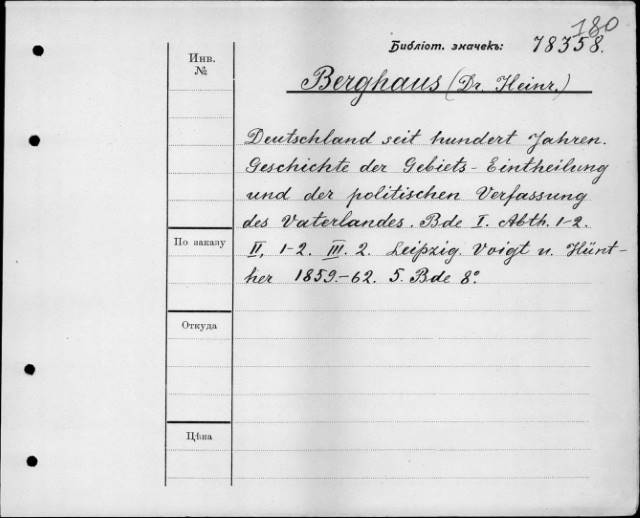 180
Библіот. значекъ: 78358.
Инв.
№
Berghaus (Dr. Heinr.)
Deutschland seit hundert Jahren.
Geschichte der Gebiets-Eintheilung
und der politischen Verfassung
des Vaterlandes. Bde I. Abth. 1-2.
По заказу
II, 1-2. III. 2. Leipzig. Voigt u. Hünt-
her 1859.-62. 5. Bde 8°
Откуда
Цѣна